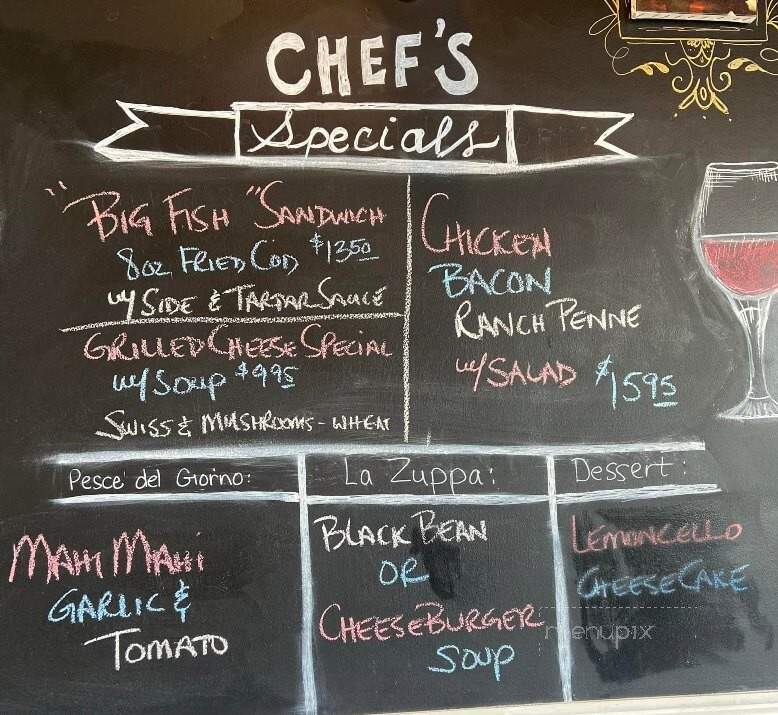 CHEF'S
Specials
"BIG FISH" SANDWICH
8oz FRIED COD $1350
w/ SIDE & TARTAR SAUCE
GRILLED CHEESE SPECIAL
w/ SOUP $995
SWISS & MUSHROOMS - WHEAT
CHICKEN
BACON
RANCH PENNE
w/ SALAD $1595
Pesce' del Giorno:
MAHI MAHI
GARLIC &
TOMATO
La Zuppa:
BLACK BEAN
OR
CHEESEBURGER
SOUP
Dessert:
LEMONCELLO
CHEESECAKE
menupix